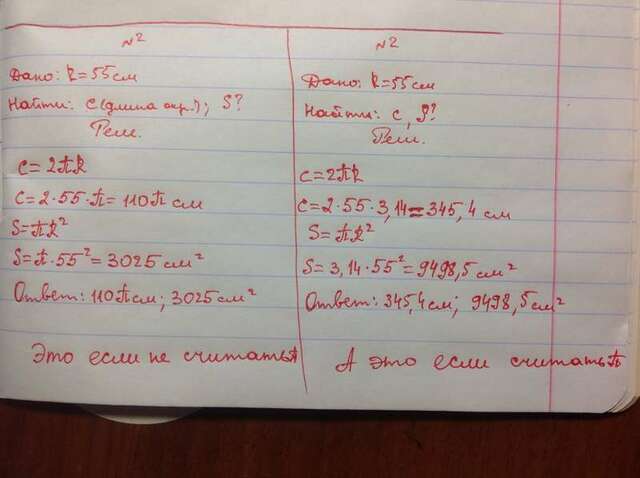 №2
Дано: R=55см
Найти: C(длина окр.); S?
Реш.
C=2πR
C=2·55·π=110π см
S=πR²
S=π·55²=3025см²
Ответ: 110πсм; 3025см²
Это если не считать π
№2
Дано: R=55см
Найти: C, S?
Реш.
C=2πR
C=2·55·3,14=345,4 см
S=πR²
S=3,14·55²=9498,5см²
Ответ: 345,4см; 9498,5см²
А это если считать π